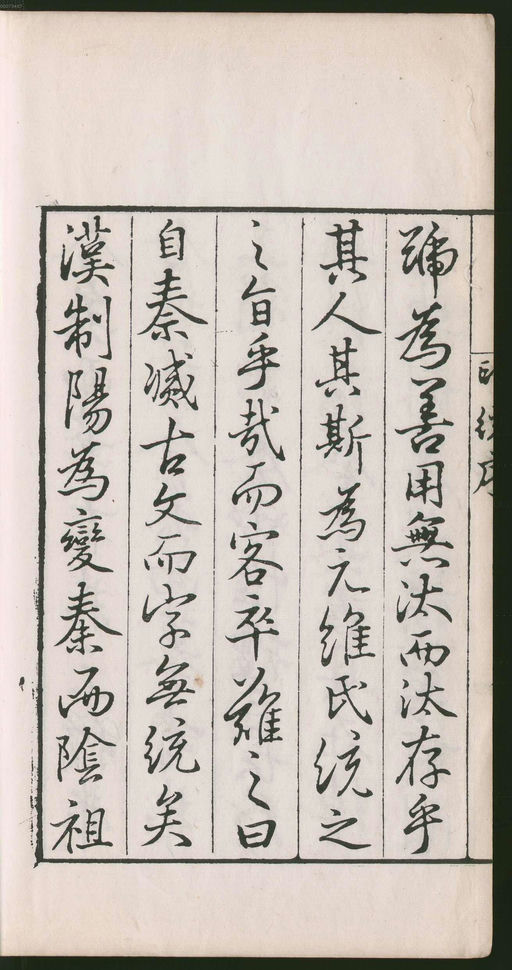 號為善用無法而法存乎
其人其斯為元維氏統之
之旨乎哉而客卒難之曰
自秦滅古文而字無統矣
漢制陽為變秦而陰祖